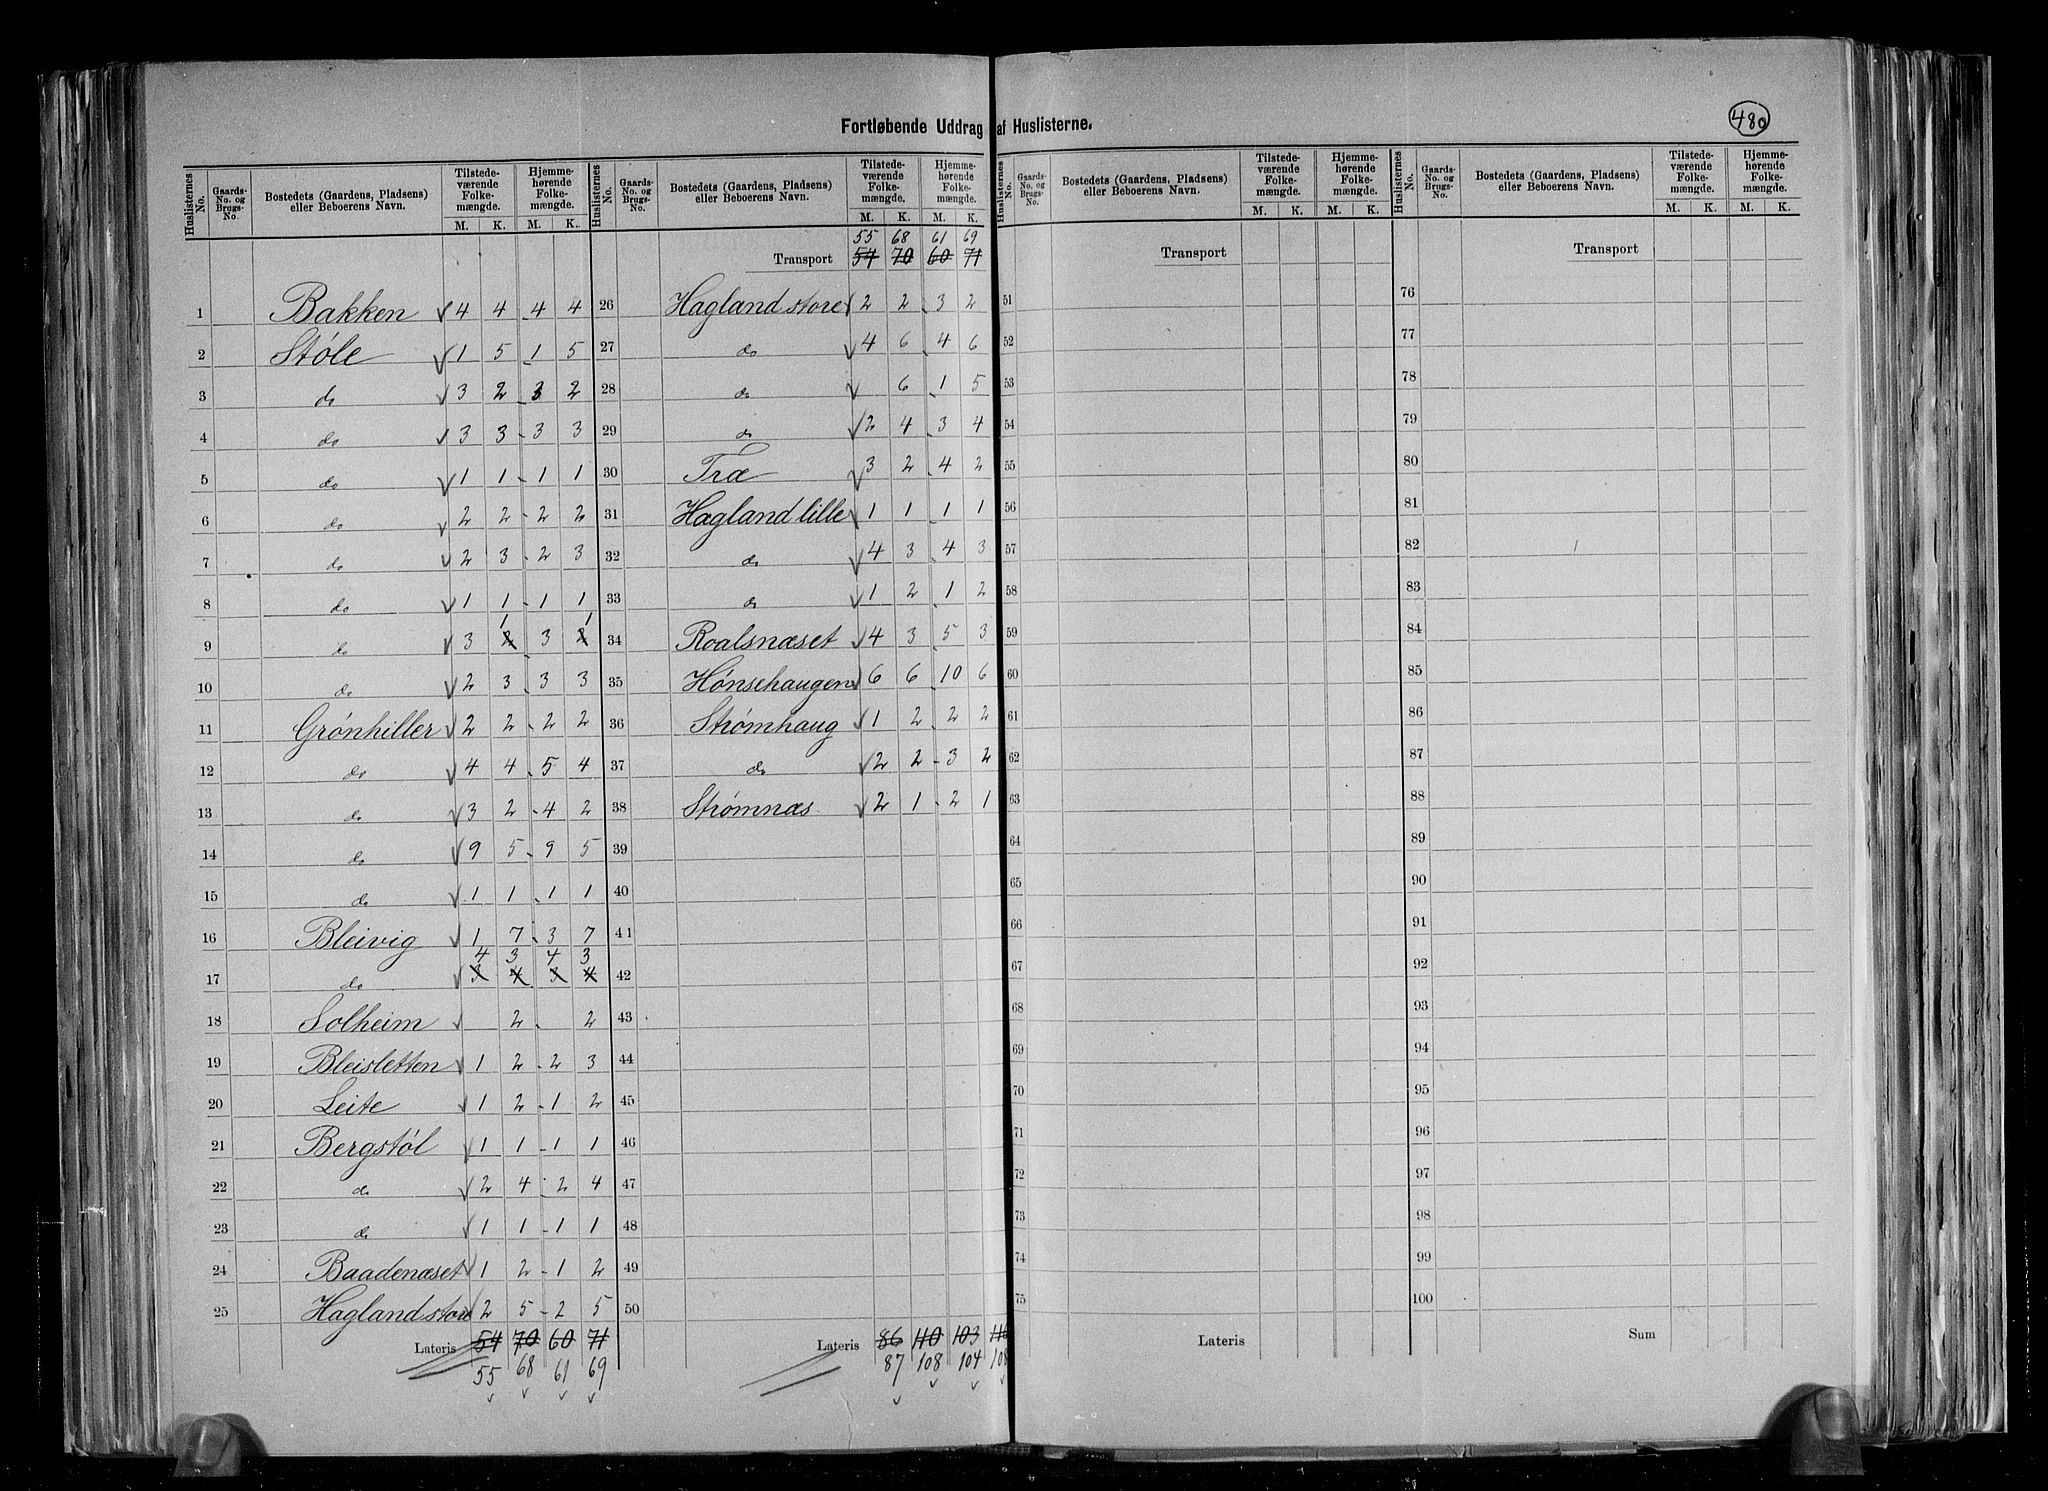 480
Fortløbende Uddrag af Huslisterne.
Huslisternes No. | Gaards-No. og Brugs-No. | Bostedets (Gaardens, Pladsens) eller Beboerens Navn. | Tilstedeværende Folkemængde. M. K. | Hjemmehørende Folkemængde. M. K.
1 Bakken 4 4 4 4
2 Støle 1 5 1 5
3 do 3 2 3 2
4 do 3 3 3 3
5 do 1 1 1 1
6 do 2 2 2 2
7 do 2 3 2 3
8 do 1 1 1 1
9 do 3 1 3 1
10 do 2 3 3 3
11 Grønhiller 2 2 2 2
12 do 4 4 5 4
13 do 3 2 4 2
14 do 9 5 9 5
15 do 1 1 1 1
16 Bleivig 1 7 3 7
4 3 4 3
17 do 3 4 3 4
18 Solheim 2 2
19 Bleisletten 1 2 2 3
20 Leite 1 2 1 2
21 Bergstøl 1 1 1 1
22 do 2 4 2 4
23 do 1 1 1 1
24 Baadenæset 1 2 1 2
25 Hagland store 2 5 2 5
Lateris 54 70 60 71
55 68 61 69
Huslisternes No. | Gaards-No. og Brugs-No. | Bostedets (Gaardens, Pladsens) eller Beboerens Navn. | Tilstedeværende Folkemængde. M. K. | Hjemmehørende Folkemængde. M. K.
55 68 61 69
Transport 54 70 60 71
26 Hagland store 2 2 3 2
27 do 4 6 4 6
28 do 6 1 5
29 do 2 4 3 4
30 Træ 3 2 4 2
31 Hagland lille 1 1 1 1
32 do 4 3 4 3
33 do 1 2 1 2
34 Roalsnæset 4 3 5 3
35 Hønsehaugen 6 6 10 6
36 Strømhaug 1 2 2 2
37 do 2 2 3 2
38 Strømnæs 2 1 2 1
39
40
41
42
43
44
45
46
47
48
49
50
Lateris 86 110 103 110
87 108 104 108
Huslisternes No. | Gaards-No. og Brugs-No. | Bostedets (Gaardens, Pladsens) eller Beboerens Navn. | Tilstedeværende Folkemængde. M. K. | Hjemmehørende Folkemængde. M. K.
Transport
51
52
53
54
55
56
57
58
59
60
61
62
63
64
65
66
67
68
69
70
71
72
73
74
75
Lateris
Huslisternes No. | Gaards-No. og Brugs-No. | Bostedets (Gaardens, Pladsens) eller Beboerens Navn. | Tilstedeværende Folkemængde. M. K. | Hjemmehørende Folkemængde. M. K.
Transport
76
77
78
79
80
81
82
83
84
85
86
87
88
89
90
91
92
93
94
95
96
97
98
99
100
Sum